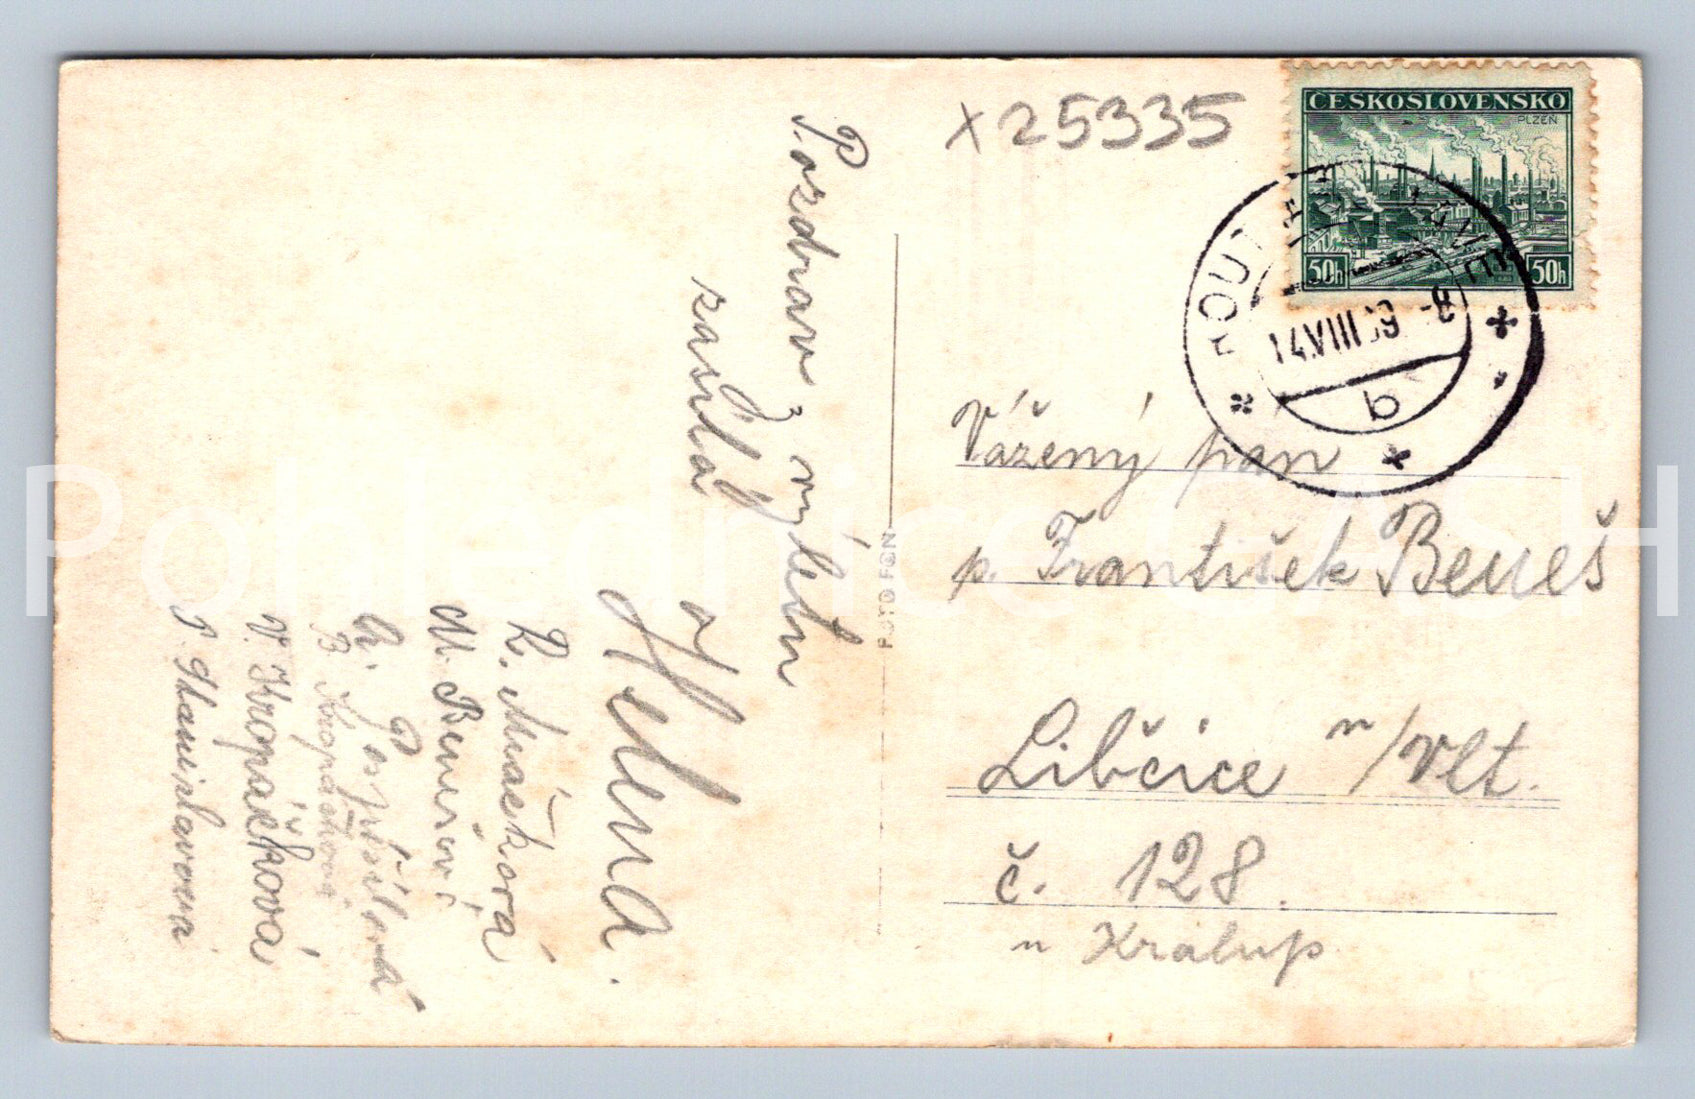 x 25335
ČESKOSLOVENSKO
PLZEŇ
50h 50h
14.VIII.39 -8
Pozdrav z výletu
zasílá
Helena.
R. Macáčková
M. Benešová
A. Pospíšilová
B. Kropáčková
V. Kropáčková
FOTO FON
Vážený pán
p. František Beneš
Libčice n/Vlt.
č. 128.
u Kralup
Pohlednice